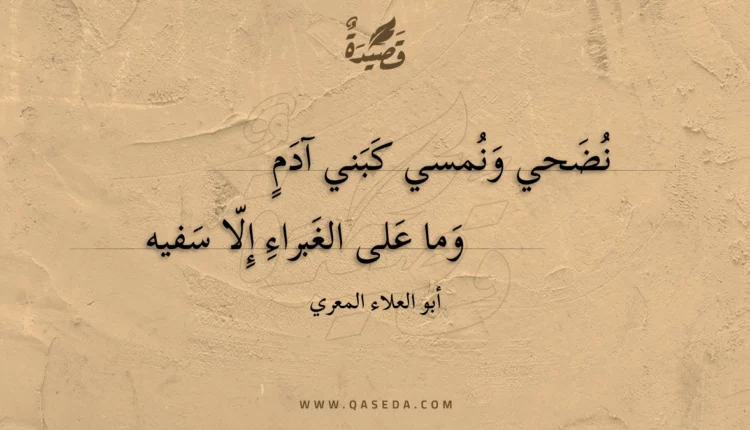 قَصِيدَةٌ
نُضَحي وَنُمسي كَبَني آدَمٍ
وَما عَلى الغَبراءِ إِلّا سَفيه
أبو العلاء المعري
WWW.QASEDA.COM